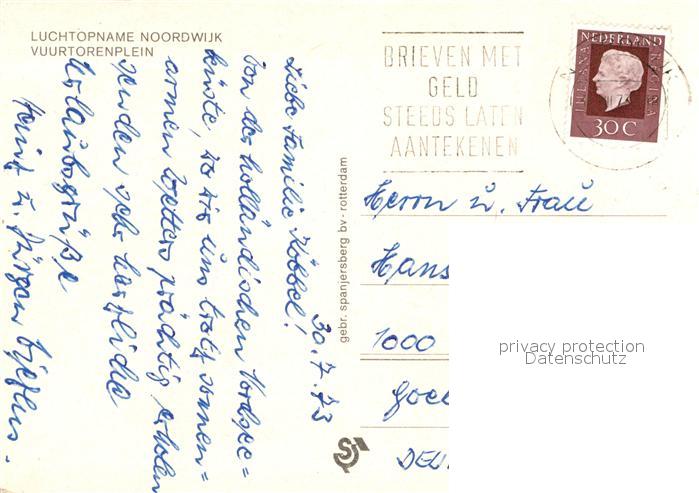 LUCHTOPNAME NOORDWIJK
VUURTORENPLEIN
30.7.73
Liebe Familie Köbbel!
Von der holländischen Nordsee=
küste, wo wir uns trotz sonnen=
armen Wetters prächtig erholen
senden sehr herzliche
Urlaubsgrüße
Heinz u. Jürgen
gebr. spanjersberg bv - rotterdam
BRIEVEN MET
GELD
STEEDS LATEN
AANTEKENEN
JULIANA NEDERLAND REGINA
30 C
Herrn u. Frau
Hans
1000
DEU
privacy protection
Datenschutz